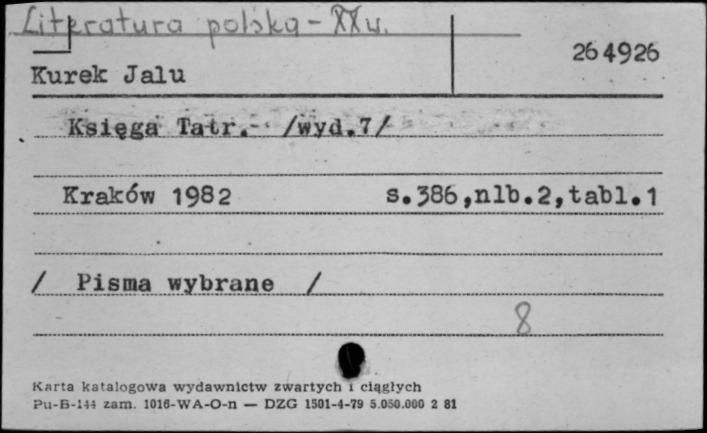 Literatura polska - XX w.
264926
Kurek Jalu
Księga Tatr.- /wyd.7/
Kraków 1982 s.386,nlb.2,tabl.1
/ Pisma wybrane /
8
Karta katalogowa wydawnictw zwartych i ciągłych
Pu-B-144 zam. 1016-WA-O-n — DZG 1501-4-79 5.050.000 2 81